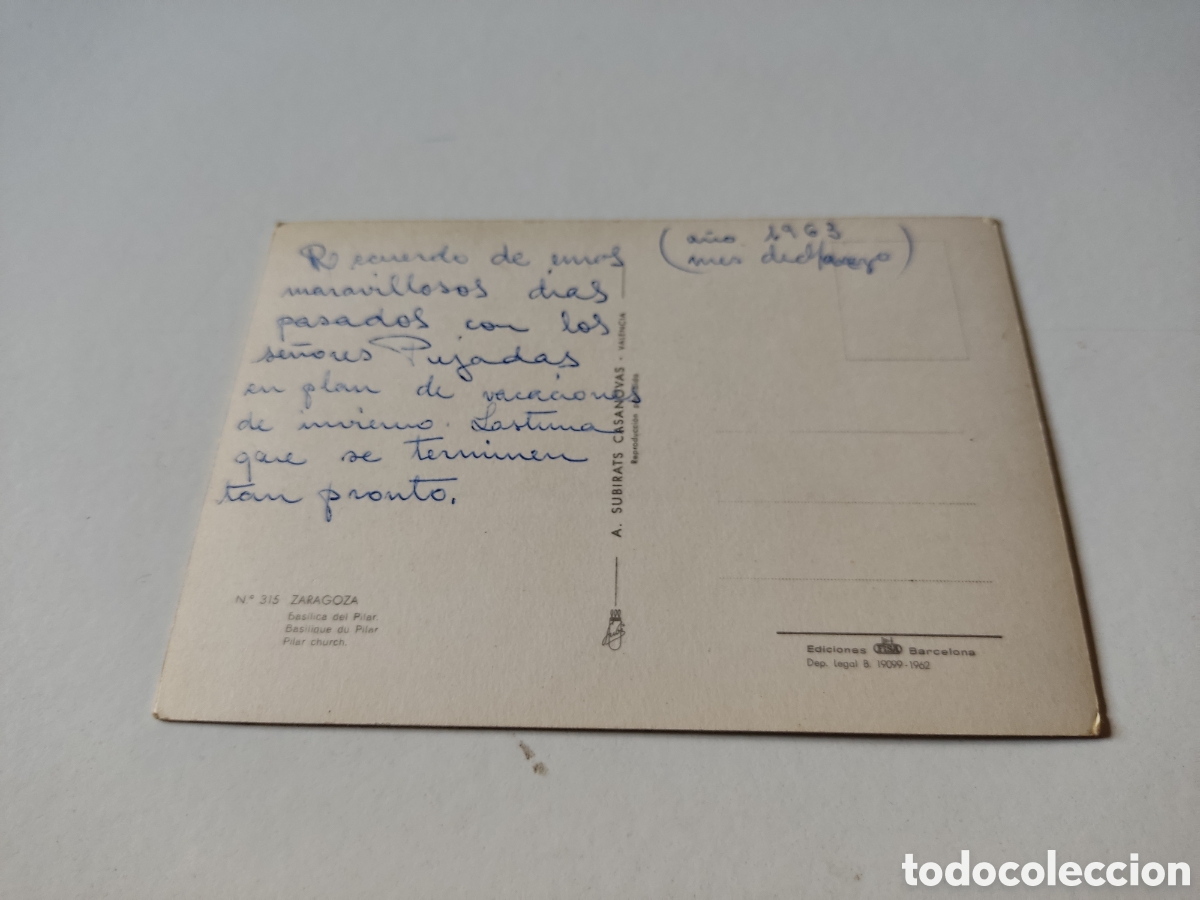 Recuerdo de unos
maravillosos dias
pasados con los
señores Pujadas
en plan de vacaciones
de invierno. Lastima
que se terminen
tan pronto.
(año 1963
mes de Marzo)
Nº 315 ZARAGOZA
Basílica del Pilar.
Basilique du Pilar
Pilar church.
A. SUBIRATS CASANOVAS - VALENCIA
Reproducción prohibida
Ediciones FISA Barcelona
Dep. legal B. 19099-1962
todocoleccion.net